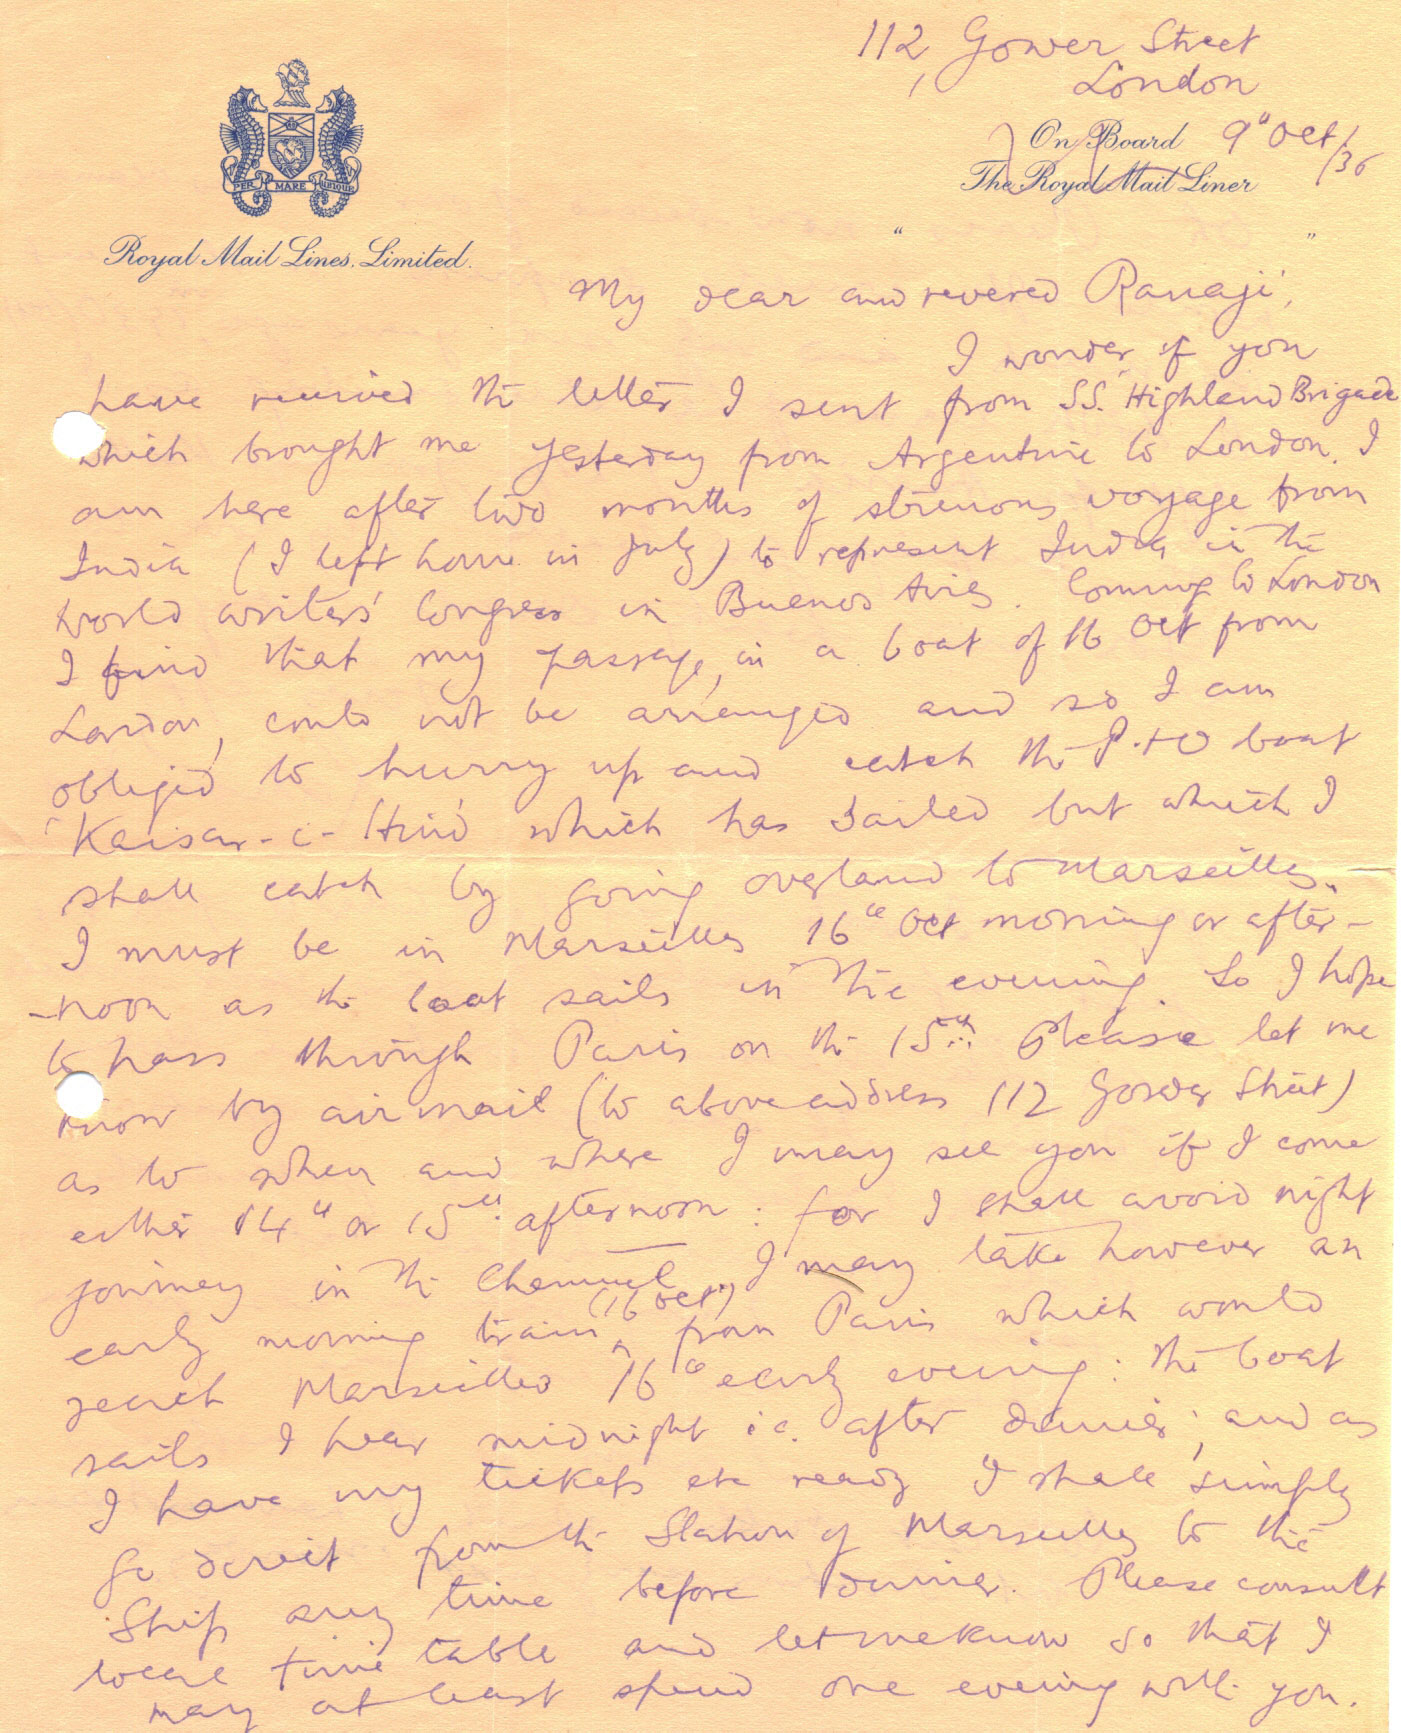 112, Gower Street
London
On Board 9th Oct/36
The Royal Mail Liner
" "
PER MARE UBIQUE
Royal Mail Lines, Limited.
My dear and revered Ranaji,
I wonder if you
have received the letter I sent from SS. Highland Brigade
which brought me yesterday from Argentine to London. I
am here after two months of strenuous voyage from
India (I left home in July) to represent India in the
World Writers' Congress in Buenos Aires. Coming to London
I find that my passage, in a boat of 16 Oct from
London, could not be arranged and so I am
obliged to hurry up and catch the P.+O boat
'Kaisar-i-Hind' which has sailed but which I
shall catch by going overland to Marseilles.
I must be in Marseilles 16th Oct morning or after-
-noon as the boat sails in the evening. So I hope
to pass through Paris on the 15th. Please let me
know by air mail (to above address 112 Gower Street)
as to when and where I may see you if I come
either 14th or 15th afternoon: for I shall avoid night
journey in the Channel. I may take however an
early morning train (16 Oct) from Paris which would
reach Marseilles 16th early evening: the boat
sails I hear midnight i.e. after dinner; and as
I have my tickets etc ready I shall simply
go direct from the Station of Marseilles to the
Ship any time before dinner. Please consult
local time table and let me know so that I
may at least spend one evening with you.